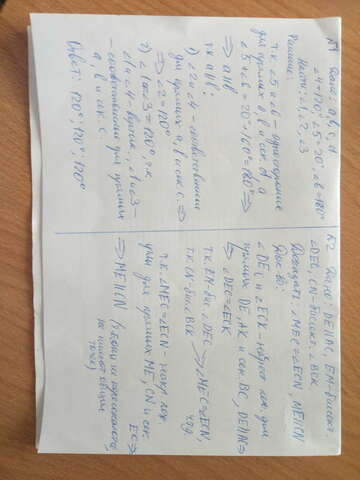 №1 Дано: a, b, c, d
∠4=120°, ∠5=70°, ∠6=180°
Найти: ∠1, ∠2, ∠3
Решение:
т.к. ∠5 и ∠6 – односторонние
для прямых a, b и сек. d, а
∠5+∠6=70°+110°=180° ⇒
⇒ a||b
т.к. a||b:
1) ∠2 и ∠4 – соответственные
для прямых a, b и сек. c. ⇒
⇒ ∠2=120°
2) ∠1=∠3=120°, т.к.
∠1 и ∠4 – вертик., ∠1 и ∠3 –
– соответственные для прямых
a, b и сек. c.
Ответ: 120°; 120°; 120°
№2 Дано: DE||AC, EM – биссект.
∠DEC, CN – биссект. ∠BCK
Доказать: ∠MEC=∠ECN, ME||CN
Док-во:
∠DEC и ∠ECK – накрест леж. для
прямых DE, AK и сек. BC, DE||AC ⇒
⇒ ∠DEC=∠ECK
т.к. EM – бис. ∠DEC
т.к. CN – бис. ∠BCK ⇒ ∠MEC=∠ECN,
ч.т.д.
т.к. ∠MEC=∠ECN – накр. леж.
для прямых ME, CN и сек.
EC ⇒
⇒ ME||CN